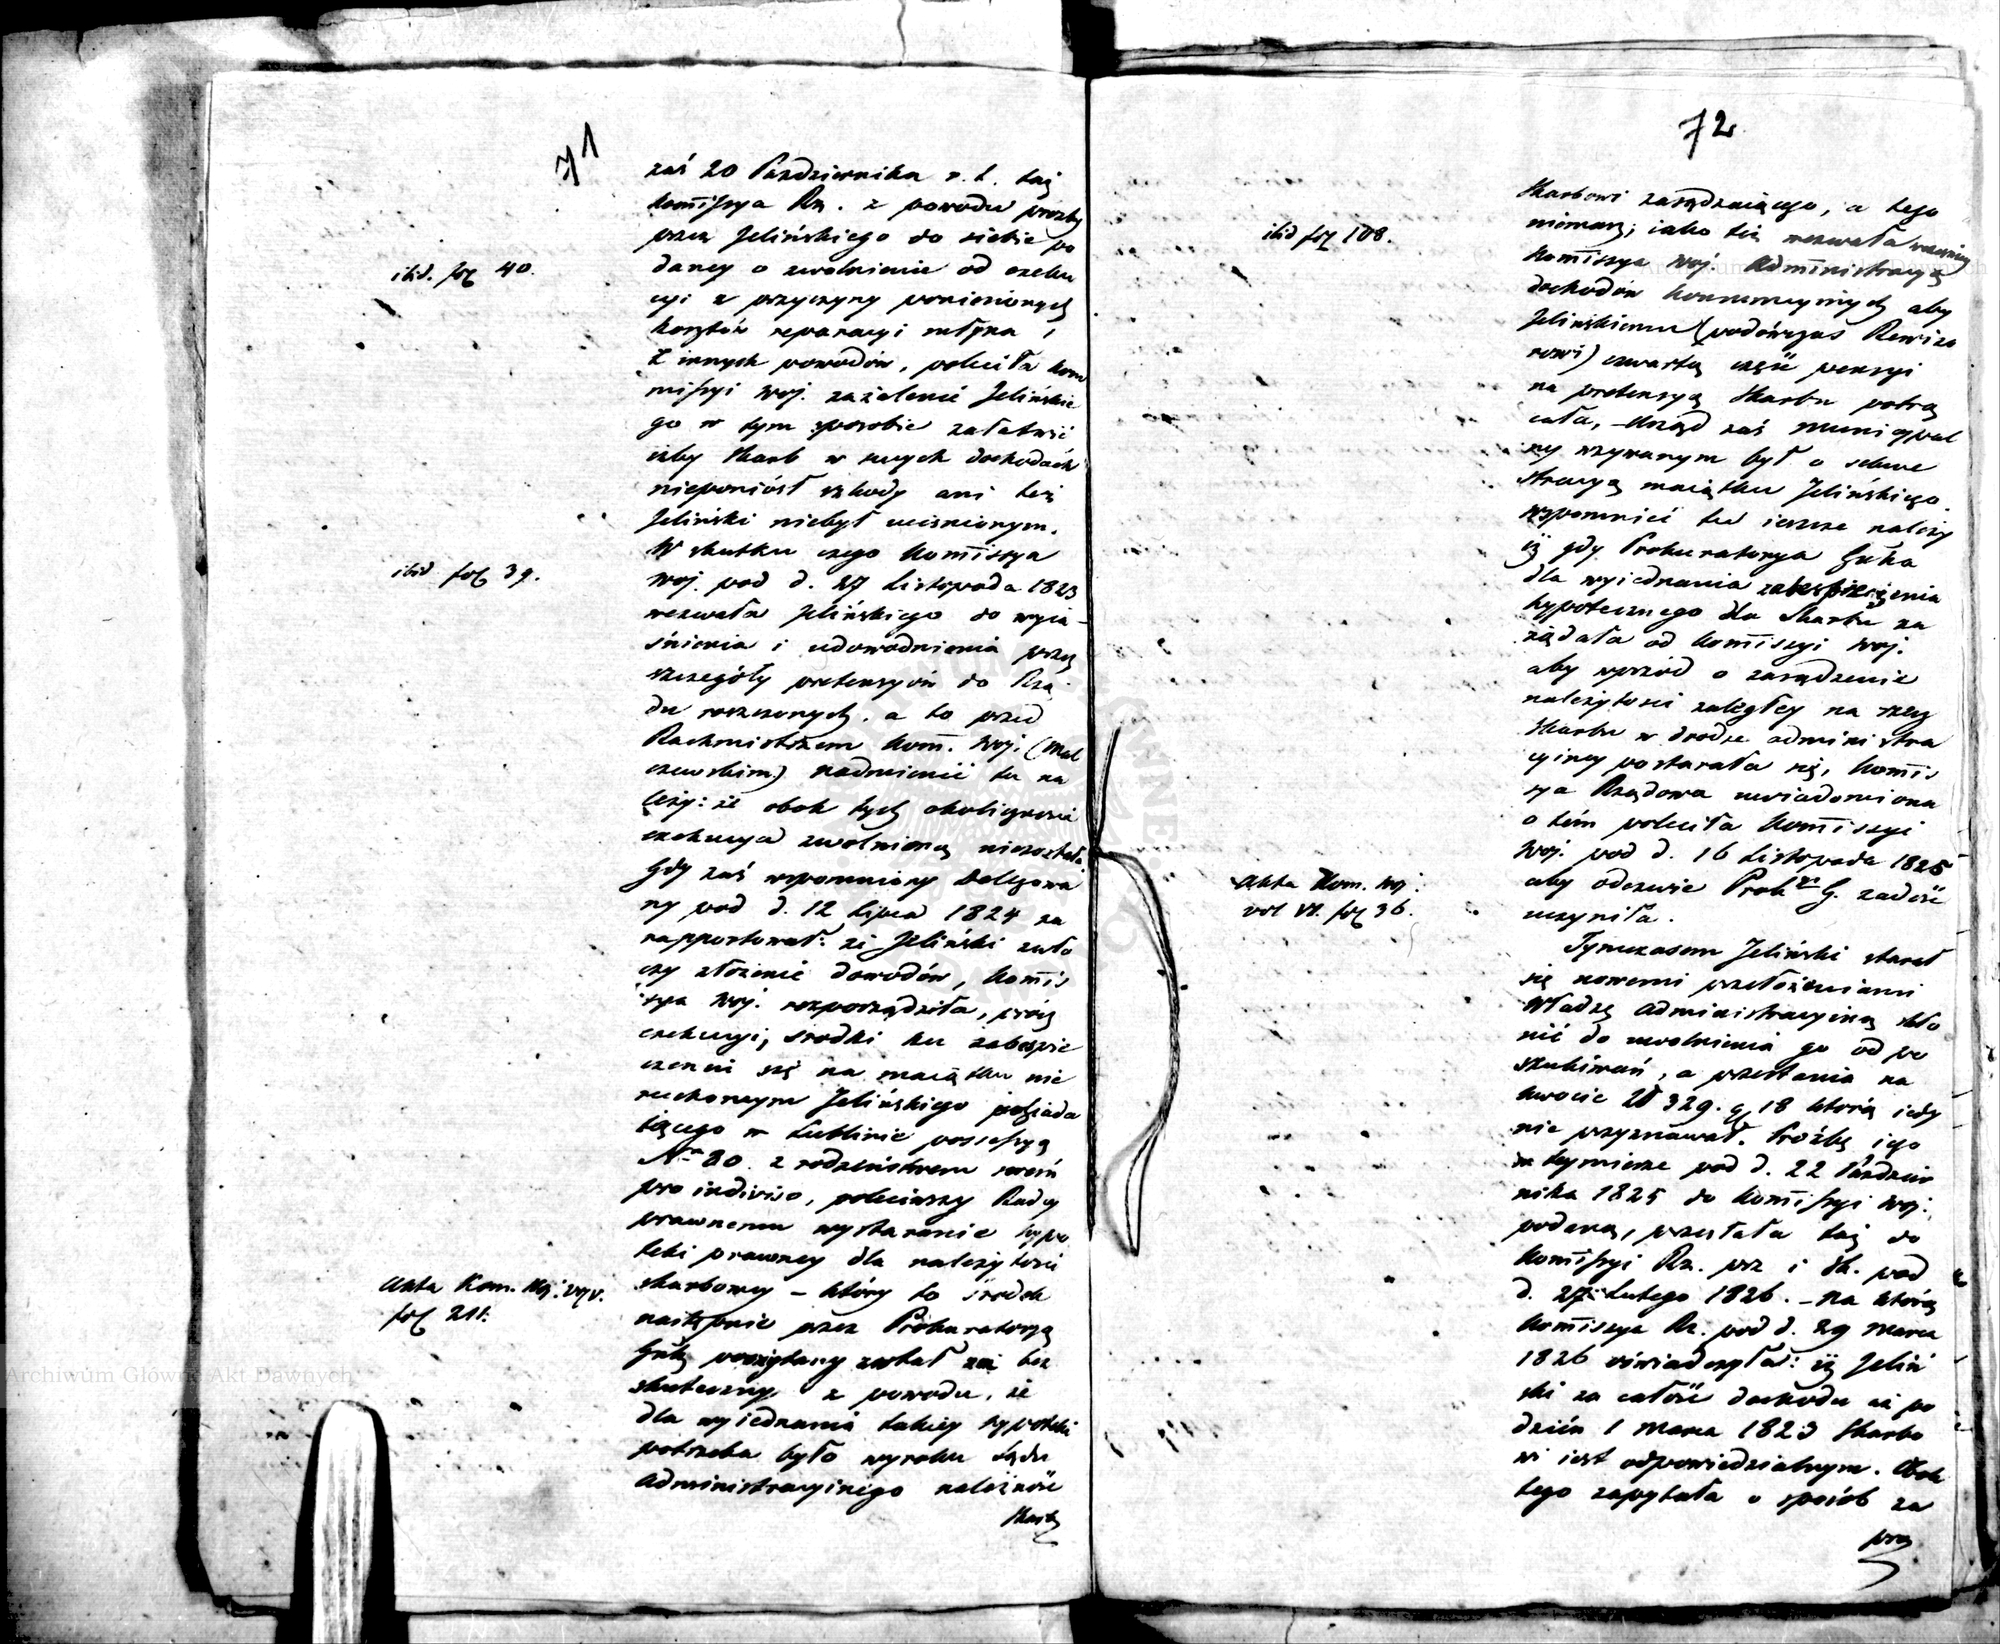 71
zaś 20 Października r. t. taż
Kommissya Rz. z powodu prozby
przez Jelińskiego do siebie po
ibid. fol 40.
daney o uwolnienie od exeku
cyi z przyczyny poniesionych
kosztów reparacyi młyna i
z innych powodów, poleciła Kom
missyi Woj. zażalenie Jelińskie
go w tym sposobie załatwić
iżby Skarb w swych dochodach
nieponiósł szkody ani też
Jeliński niebył uciśnionym.
W skutku czego Kommissya
ibid fol 39.
Woj. pod d. 27 Listopada 1823
wezwała Jelińskiego do wyia-
śnienia i udowodnienia przez
szczegóły pretensyów do Rzą
du roszczonych, a to przed
Rachmistrzem Kom. Woj. (Mal
czewskim) nadmienić tu na
leży: że obok tych okoliczności
exekucya zwolnioną niezostała
Gdy zaś wspomniony Delegowa
ny pod d. 12 Lipca 1824 za
rapportował: że Jeliński zwło
czy złożenie dowodów, Kommis
sya Woj. rozporządziła, prócz
exekucyi, środki ku zabespie
czeniu się na maiątku nie
ruchomym Jelińskiego posiada
iącego w Lublinie possessyą
Nro 80 z rodzeństwem swoim
pro indiviso, poleciwszy Radcy
prawnemu wystaranie hypo
teki prawney dla należytości
Akta Kom. Woj.
fol 211.
skarbowey – który to środek
następnie przez Prokuratoryą
Gnlą poczytany został za bez
skuteczny z powodu, że
dla wyiednania takiey hypoteki
potrzeba było wyroku Sądu
Administracyinego należność
Skarb
72
Skarbowi zasądzaiącego, a tego
niemasz; iako też wezwała wcześniey
ibid fol 108.
Kommissya Woj. Administracyą
dochodów konsumcyinych aby
Jelińskiemu (podówczas Rewizo
rowi) czwartą część pensyi
na pretensyą Skarbu potrą
cała, – Urząd zaś Municypal
ny wzywanym był o sekwe
stracyą maiątku Jelińskiego.
wspomnieć tu ieszcze należy
iż gdy Prokuratorya Gnlna
dla wyiednania zabespieczenia
hypotecznego dla Skarbu za
żądała od Kommissyi Woj.
aby wprzód o zasądzenie
należytości zaległey na rzecz
Skarbu w drodze administra
cyiney postarała się, Kommis
sya Rządowa uwiadomiona
o tém poleciła Kommissyi
Woj. pod d. 16 Listopada 1825
Akta Kom. Woj.
vol VI. fol 36.
aby odezwie Prokryi G. zadość
uczyniła.
Tymczasem Jeliński starał
się nowemi przełożeniami
Władzę Administracyiną skło
nić do uwolnienia go od po
szukiwań, a przestania na
kwocie Zł 329. g 18 którą iedy
nie przyznawał. Prośbę iego
w teymierze pod d. 22 Paździer
nika 1825 do Kommissyi Woj.
podaną, przesłała taż do
Kommissyi Rz. prz i Sk. pod
d. 27 Lutego 1826. – Na którą
Kommissya Rz. pod d. 29 Marca
1826 oświadczyła: iż Jeliń
ski za całość dochodu aż po
dzień 1 Marca 1823 Skarbo
wi iest odpowiedzialnym. Obok
tego zapytała o sposób za
pra
Archiwum Główne Akt Dawnych